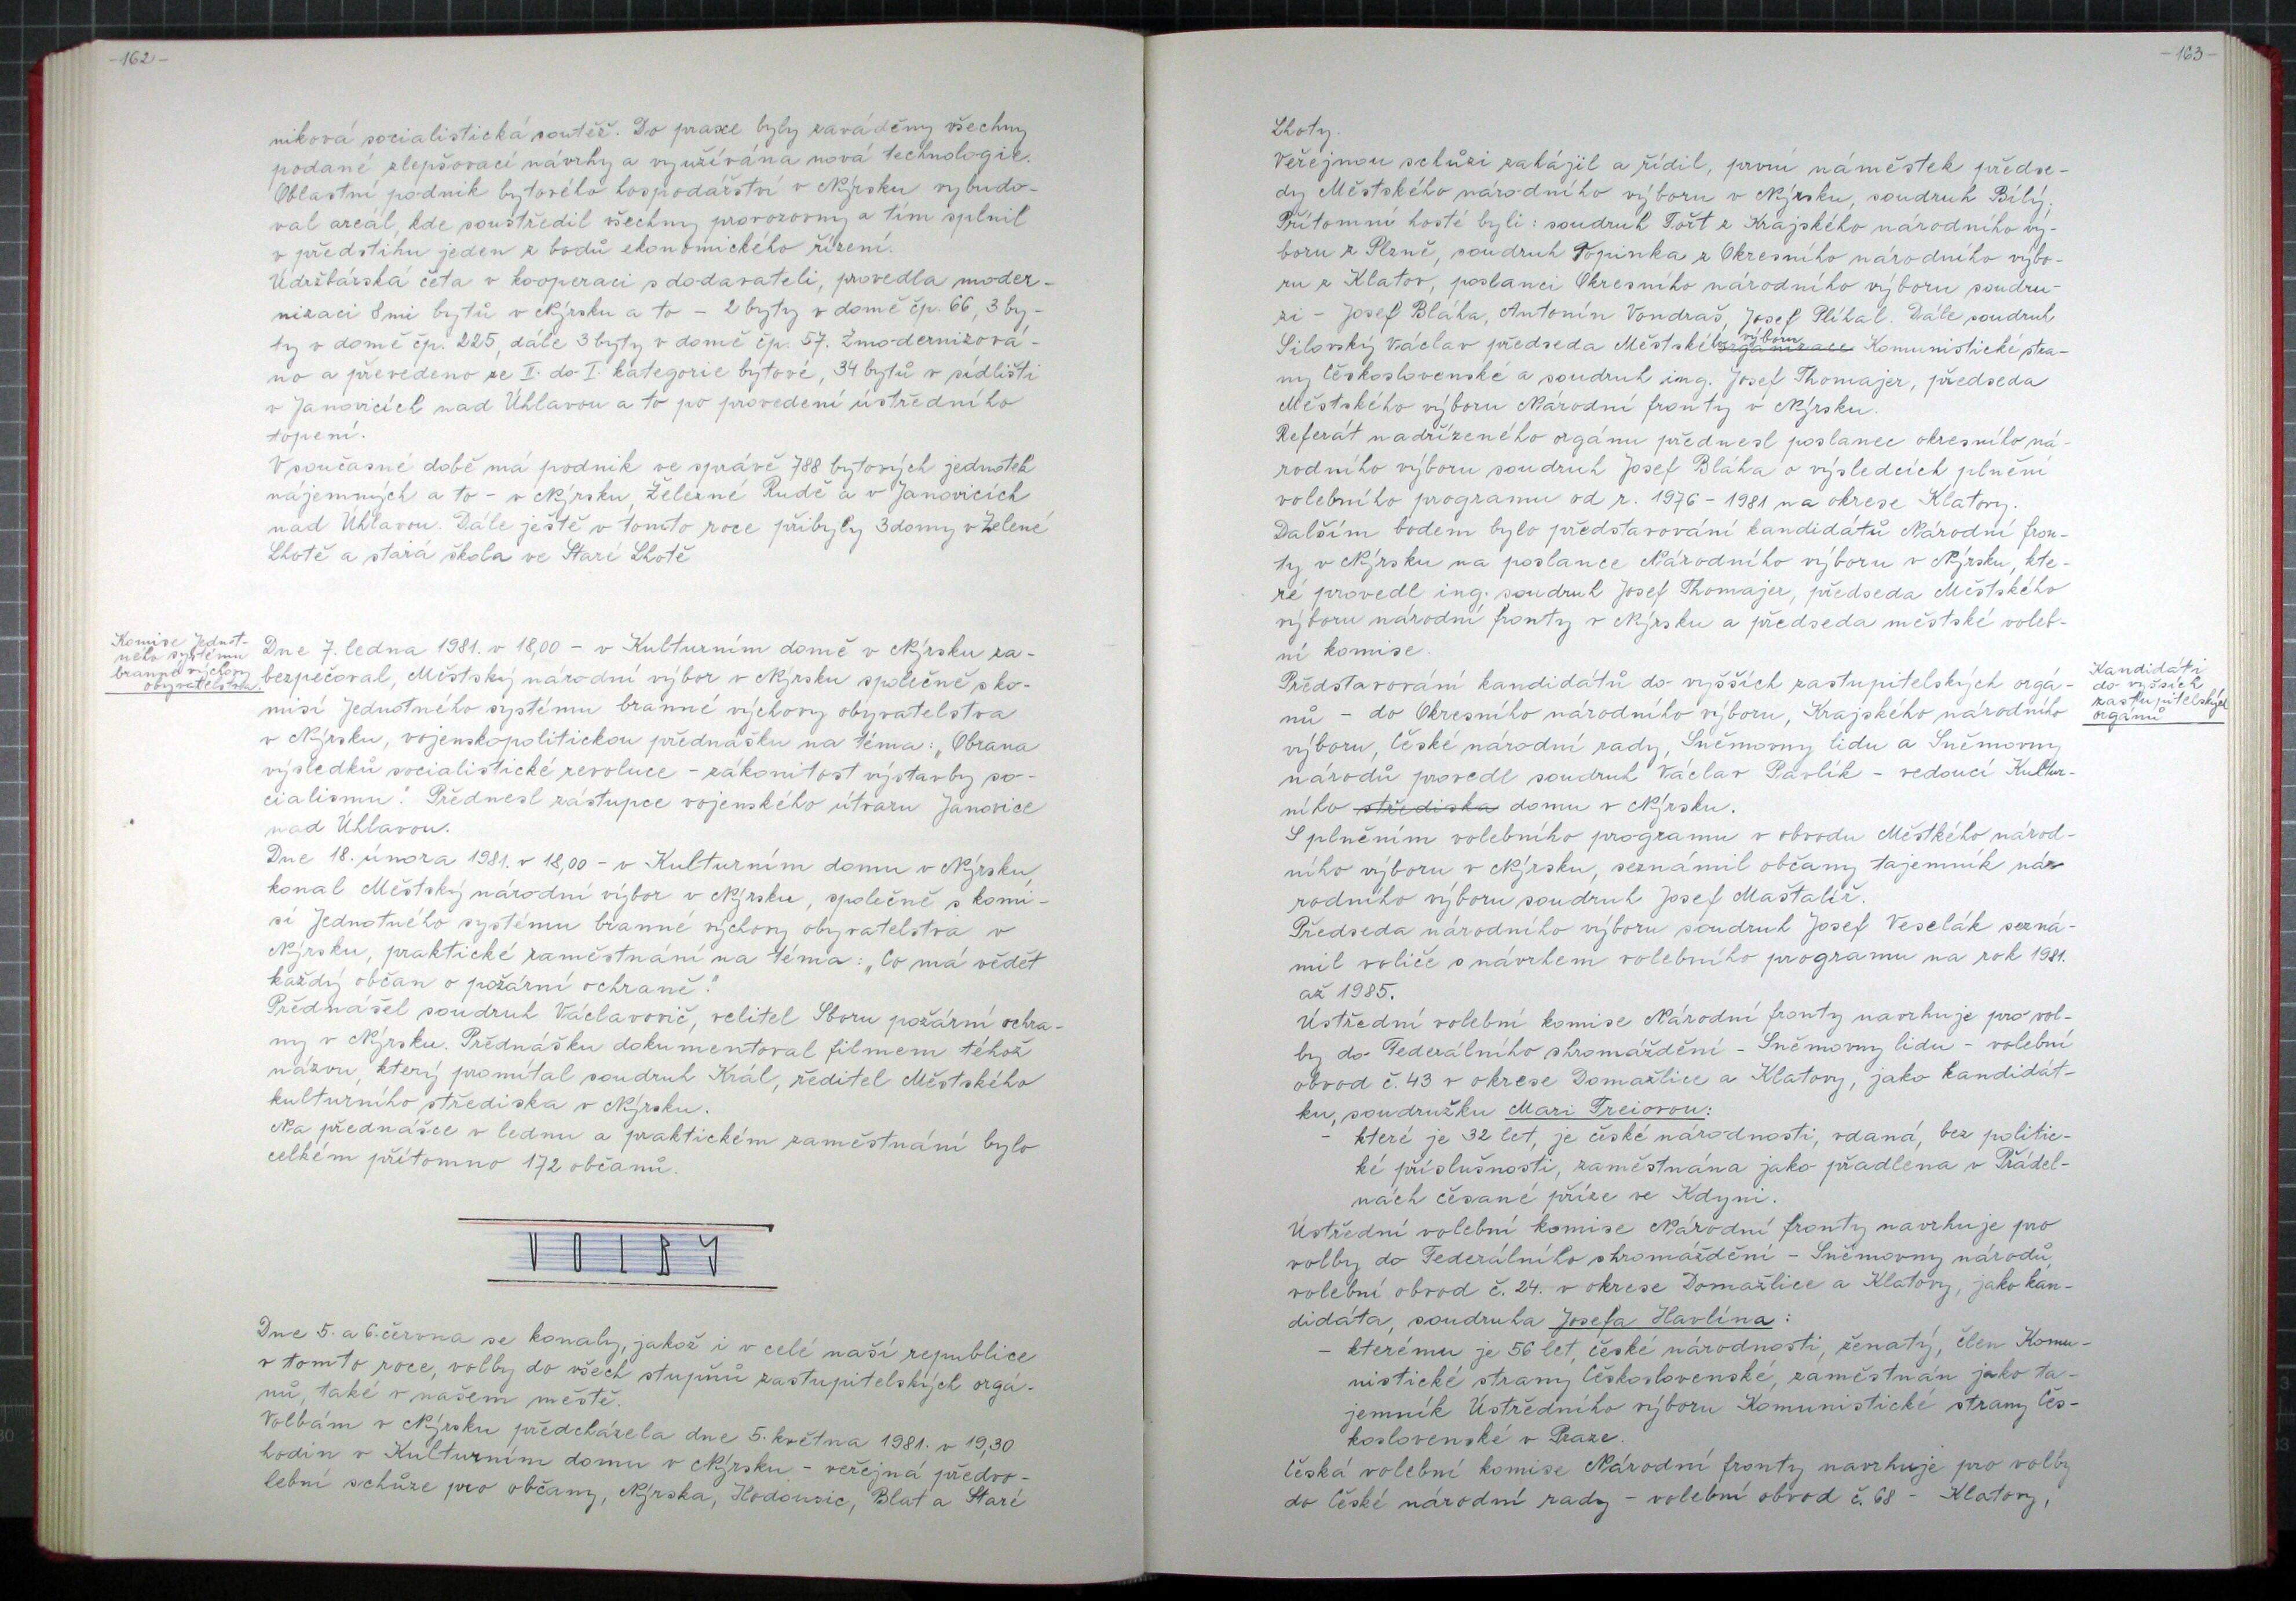 -162-
niková socialistická soutěž. Do praxe byly zaváděny všechny
podané zlepšovací návrhy a využívána nová technologie.
Oblastní podnik bytového hospodářství v Nýrsku vybudo-
val areál, kde soustředil všechny provozovny a tím splnil
v předstihu jeden z bodů ekonomického řízení.
Údržbářská četa v kooperaci s dodavateli, provedla moder-
nizaci 8mi bytů v Nýrsku a to - 2 byty v domě čp. 66, 3 by-
ty v domě čp. 225, dále 3 byty v domě čp. 57. Zmodernizová-
no a převedeno ze II. do I. kategorie bytové, 34 bytů v sídlišti
v Janovicích nad Úhlavou a to po provedení ústředního
topení.
V současné době má podnik ve správě 788 bytových jednotek
nájemných a to - v Nýrsku, Železné Rudě a v Janovicích
nad Úhlavou. Dále ještě v tomto roce přibyly 3 domy v Zelené
Lhotě a stará škola ve Staré Lhotě
Komise Jednot-
ného systému
branné výchovy
obyvatelstva.
Dne 7. ledna 1981. v 18,00 - v Kulturním domě v Nýrsku za-
bezpečoval, Městský národní výbor v Nýrsku společně s ko-
misí Jednotného systému branné výchovy obyvatelstva
v Nýrsku, vojenskopolitickou přednášku na téma: „Obrana
výsledků socialistické revoluce - zákonitost výstavby so-
cialismu." Přednesl zástupce vojenského útvaru Janovice
nad Úhlavou.
Dne 18. února 1981. v 18,00 - v Kulturním domu v Nýrsku,
konal Městský národní výbor v Nýrsku, společně s komi-
sí Jednotného systému branné výchovy obyvatelstva v
Nýrsku, praktické zaměstnání na téma: „Co má vědět
každý občan o požární ochraně."
Přednášel soudruh Václavovič, velitel Sboru požární ochra-
ny v Nýrsku. Přednášku dokumentoval filmem téhož
názvu, který promítal soudruh Král, ředitel Městského
kulturního střediska v Nýrsku.
Na přednášce v lednu a praktickém zaměstnání bylo
celkém přítomno 172 občanů.
VOLBY
Dne 5. a 6. června se konaly, jakož i v celé naší republice
v tomto roce, volby do všech stupňů zastupitelských orgá-
nů, také v našem městě.
Volbám v Nýrsku předcházela dne 5. května 1981. v 19,30
hodin v Kulturním domu v Nýrsku - veřejná předvo-
lební schůze pro občany, Nýrska, Hodousic, Blat a Staré
-163-
Lhoty.
Veřejnou schůzi zahájil a řídil, první náměstek předse-
dy Městského národního výboru v Nýrsku, soudruh Bílý.
Přítomní hosté byli: soudruh Tošt z Krajského národního vý-
boru z Plzně, soudruh Topinka z Okresního národního výbo-
ru z Klatov, poslanci Okresního národního výboru soudru-
zi - Josef Bláha, Antonín Vondraš, Josef Plíhal. Dále soudruh
výboru
Silovský Václav předseda Městského organizace Komunistické stra-
ny Československé a soudruh ing. Josef Thomajer, předseda
Městského výboru Národní fronty v Nýrsku.
Referát nadřízeného orgánu přednesl poslanec okresního ná-
rodního výboru soudruh Josef Bláha o výsledcích plnění
volebního programu od r. 1976 - 1981 na okrese Klatovy.
Dalším bodem bylo představování kandidátů Národní fron-
ty v Nýrsku na poslance Národního výboru v Nýrsku, kte-
ré provedl ing. soudruh Josef Thomajer, předseda Městského
výboru národní fronty v Nýrsku a předseda městské voleb-
ní komise.
Představování kandidátů do vyšších zastupitelských orgá-
nů - do Okresního národního výboru, Krajského národního
výboru, České národní rady, Sněmovny lidu a Sněmovny
národů provedl soudruh Václav Pavlík - vedoucí Kultur-
ního střediska domu v Nýrsku.
Kandidáti
do vyšších
zastupitelských
orgánů
S plněním volebního programu v obvodu Městkého národ-
ního výboru v Nýrsku, seznámil občany tajemník ná-
rodního výboru soudruh Josef Maštalíř.
Předseda národního výboru soudruh Josef Veselák sezná-
mil voliče s návrhem volebního programu na rok 1981.
až 1985.
Ústřední volební komise Národní fronty navrhuje pro vol-
by do Federálního shromáždění - Sněmovny lidu - volební
obvod č. 43 v okrese Domažlice a Klatovy, jako kandidát-
ku, soudružku Marii Treiorou:
- které je 32 let, je české národnosti, vdaná, bez politic-
ké příslušnosti, zaměstnána jako přadlena v Přádel-
nách česané příze ve Kdyni.
Ústřední volební komise Národní fronty navrhuje pro
volby do Federálního shromáždění - Sněmovny národů,
volební obvod č. 24. v okrese Domažlice a Klatovy, jako kan-
didáta, soudruha Josefa Havlína:
- kterému je 56 let, české národnosti, ženatý, člen Komu-
nistické strany Československé, zaměstnán jako ta-
jemník Ústředního výboru Komunistické strany Čes-
koslovenské v Praze.
Česká volební komise Národní fronty navrhuje pro volby
do České národní rady - volební obvod č. 68 - Klatovy,